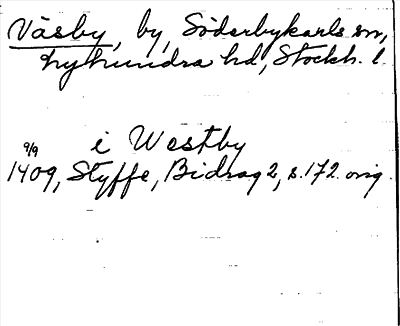 Väsby, by, Söderbykarls sn,
Lyhundra hd, Stockh. l
i Westby
9/9
1409, Styffe, Bidrag 2, s. 172. orig.